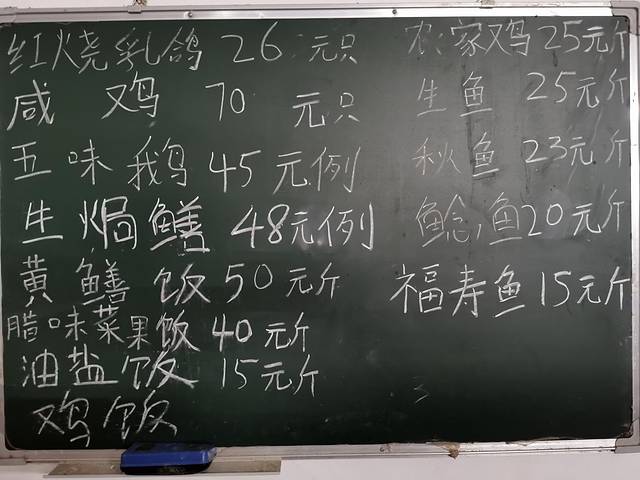 红烧乳鸽 26 元只
咸鸡 70 元只
五味鹅 45元例
生焗鳝 48元例
黄鳝饭 50元斤
腊味菜果饭 40元斤
油盐饭 15元斤
鸡饭
农家鸡 25元斤
生鱼 25元斤
秋鱼 23元斤
鲶鱼 20元斤
福寿鱼 15元斤